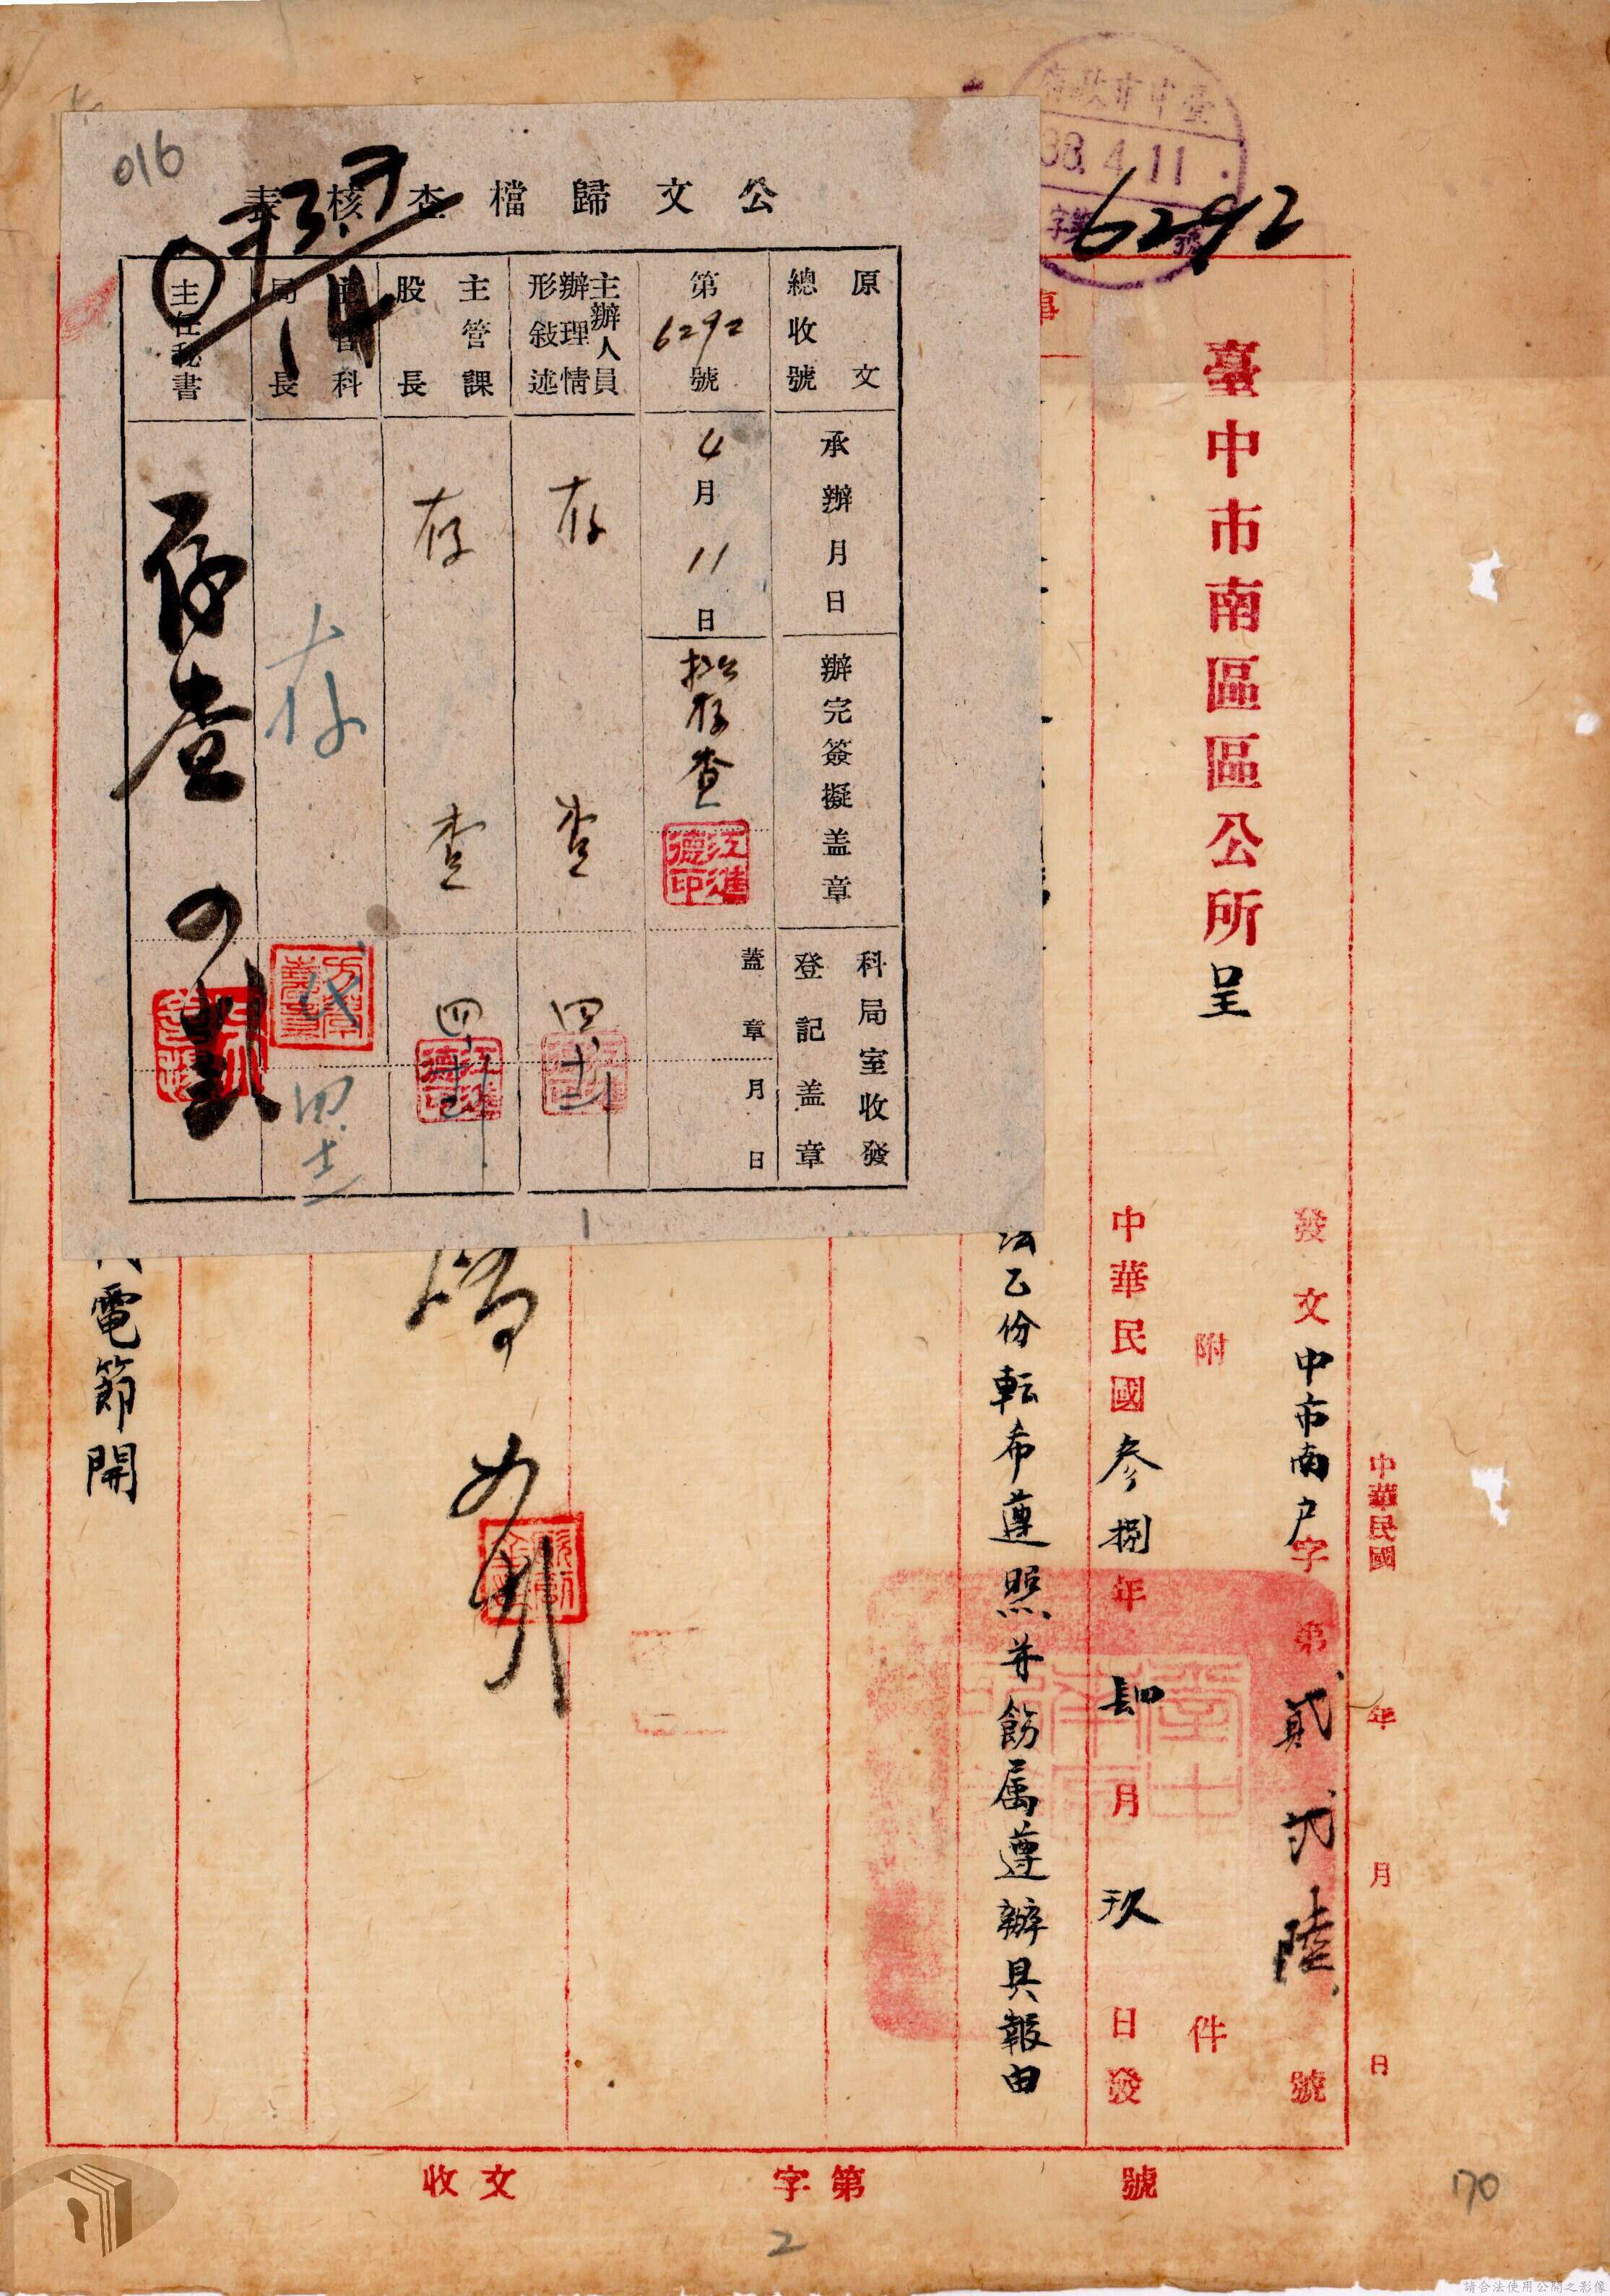 臺中市政府
38.4.11.
字第 號
6292
中華民國 年 月 日
發文中市南户字第貳貳陸號
臺中市南區區公所呈
附 件
中華民國叁捌年肆月玖日發
事
法乙份転希遵照并飭属遵辦具報由
電節開
收文 字第 號
公文歸檔查核表
016
原文總收號
第6292號
承辦月日
4月11日
辦完簽擬盖章
擬存查
江進德印
科局室收發登記盖章
蓋章 月 日
主辦人員辦理情形敍述
存查
四
主管課股長
存查
四
主管科局長
存
代
四
主任秘書
存查
1
2
170
請合法使用公開之影像